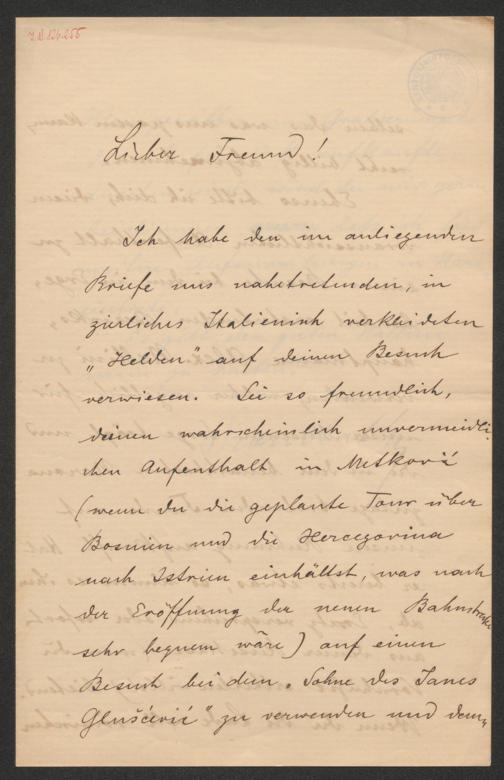 I.N. 136.255
Lieber Freund!
Ich habe den im anliegenden
Briefe uns nahetretenden, in
zierliches Italienisch verkleideten
„Helden" auf deinen Besuch
verwiesen. Sei so freundlich,
deinen wahrscheinlich unvermeidli-
chen Aufenthalt in Metković
(wenn du die geplante Tour über
Bosnien und die Hercegovina
nach Istrien einhältst, was nach
der Eröffnung der neuen Bahnstrecke
sehr bequem wäre) auf einen
Besuch bei dem „Sohne des Janes
Gluščević" zu verwenden und dem-